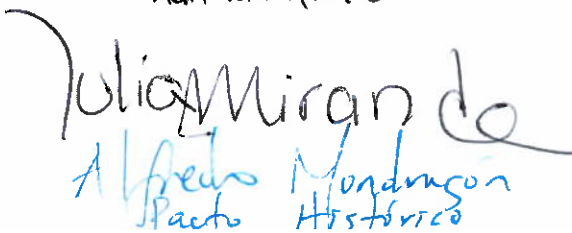 Julia Miranda
Alfredo Mondragón
Pacto Histórico